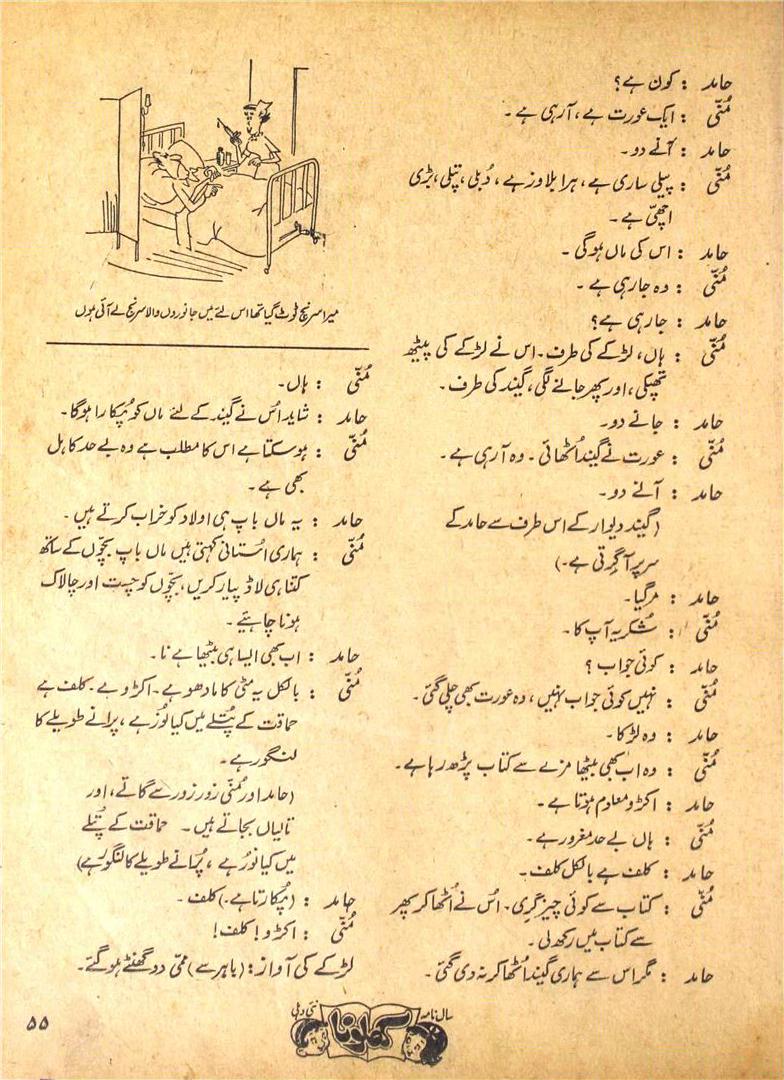 حامد : کون ہے؟
مُنّی : ایک عورت ہے، آرہی ہے۔
حامد : آنے دو۔
مُنّی : پیلی ساری ہے، ہرا بلاوز ہے، دُبلی، پتلی، بڑی
اچھی ہے۔
حامد : اس کی ماں ہوگی۔
مُنّی : وہ جارہی ہے۔
حامد : جارہی ہے؟
مُنّی : ہاں، لڑکے کی طرف۔ اس نے لڑکے کی پیٹھ
تھپکی، اور پھر جانے لگی، گیند کی طرف۔
حامد : جانے دو۔
مُنّی : عورت نے گیند اُٹھائی۔ وہ آرہی ہے۔
حامد : آنے دو۔
(گیند دیوار کے اس طرف سے حامد کے
سر پر آگِرتی ہے۔)
حامد : مرگیا۔
مُنّی : شکریہ آپ کا۔
حامد : کوئی جواب؟
مُنّی : نہیں کوئی جواب نہیں، وہ عورت بھی چلی گئی۔
حامد : وہ لڑکا۔
مُنّی : وہ اب بھی بیٹھا مزے سے کتاب پڑھ رہا ہے۔
حامد : اکڑو معلوم ہوتا ہے۔
مُنّی : ہاں بے حد مغرور ہے۔
حامد : کلف ہے بالکل کلف۔
مُنّی : کتاب سے کوئی چیز گری۔ اُس نے اُٹھا کر پھر
سے کتاب میں رکھ لی۔
حامد : مگر اس سے ہماری گیند اُٹھا کر نہ دی گئی۔
میرا سرنج ٹوٹ گیا تھا اس لئے میں جانوروں والا سرنج لے آئی ہوں
مُنّی : ہاں۔
حامد : شاید اُس نے گیند کے لئے ماں کو پُکارا ہوگا۔
مُنّی : ہوسکتا ہے اس کا مطلب ہے وہ بے حد کاہل
بھی ہے۔
حامد : یہ ماں باپ ہی اولاد کو خراب کرتے ہیں۔
مُنّی : ہماری اُستانی کہتی ہیں ماں باپ بچّوں کے ساتھ
کتنا ہی لاڈ پیار کریں، بچّوں کو چست اور چالاک
ہونا چاہئیے۔
حامد : اب بھی ایسا ہی بیٹھا ہے نا۔
مُنّی : بالکل یہ مٹی کا مادھو ہے۔ اکڑو ہے۔ کلف ہے
حماقت کے پُتلے میں کیا نُور ہے، پرانے طویلے کا
لنگور ہے۔
(حامد اور مُنّی زور زور سے گاتے، اور
تالیاں بجاتے ہیں۔ حماقت کے پتلے
میں کیا نُور ہے، پُرانے طویلے کا لنگور ہے)
حامد : (پُکارتا ہے۔) کلف۔
مُنّی : اکڑو! کلف!
لڑکے کی آواز: (باہر سے) ممّی دو گھنٹے ہوگئے۔
سال نامہ
کھلونا
نئی دہلی
۵۵